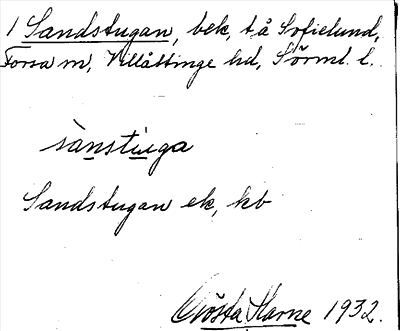 1 Sandstugan, bek, t. å Sofielund,
Forsa m, Villåttinge hd, Sörml. l.
sànstuga
Sandstugan ek, kb
Gösta 1932.